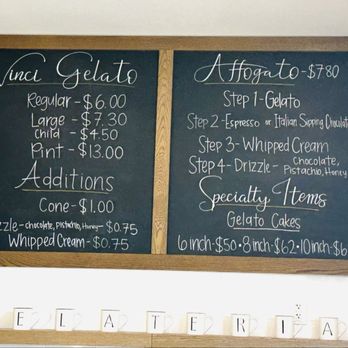 Vinci Gelato
Regular - $6.00
Large - $7.30
Child - $4.50
Pint - $13.00
Additions
Cone - $1.00
zzle - chocolate, Pistachio, Honey - $0.75
Whipped Cream - $0.75
Affogato - $7.80
Step 1 - Gelato
Step 2 - Espresso or Italian Sipping Chocolate
Step 3 - Whipped Cream
Step 4 - Drizzle - Chocolate, Pistachio, Honey
Specialty Items
Gelato Cakes
6 inch - $50 • 8 inch - $62 • 10 inch - $6
E L A T E R I A